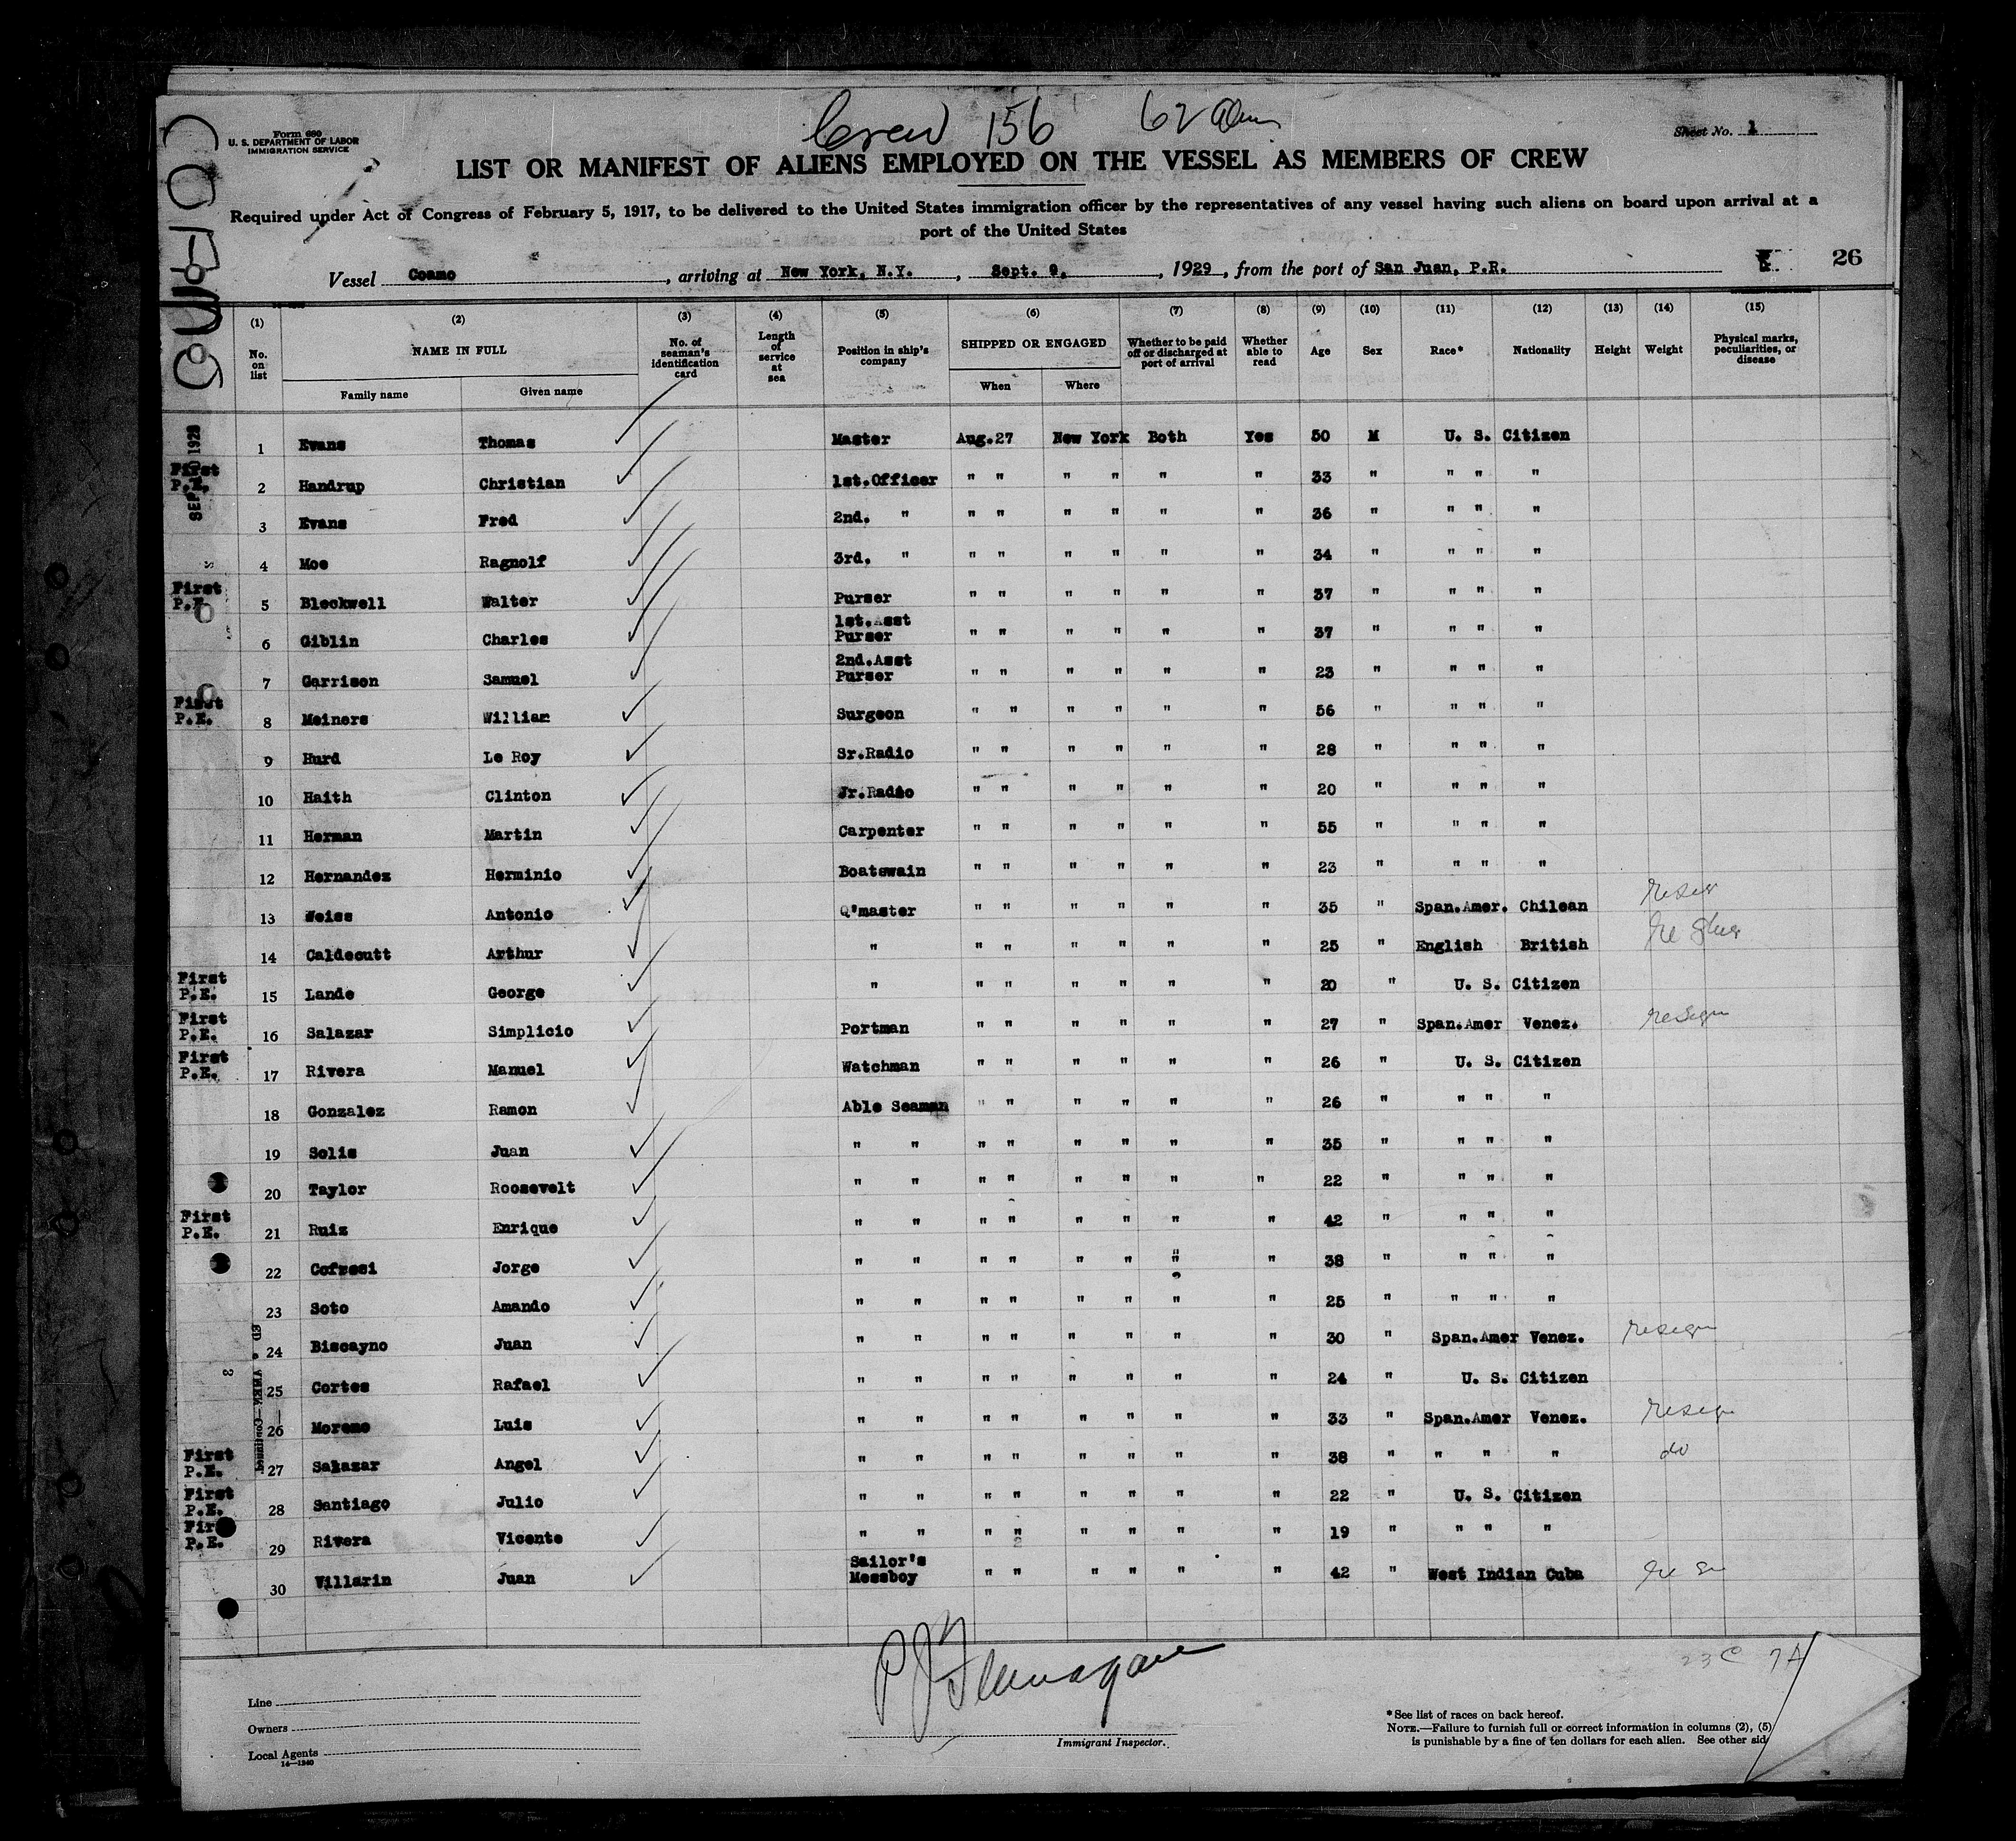 Crew 156 62
Form 680
U. S. DEPARTMENT OF LABOR
IMMIGRATION SERVICE
Sheet No. 1
LIST OR MANIFEST OF ALIENS EMPLOYED ON THE VESSEL AS MEMBERS OF CREW
Required under Act of Congress of February 5, 1917, to be delivered to the United States immigration officer by the representatives of any vessel having such aliens on board upon arrival at a
port of the United States
Vessel Coamo, arriving at New York, N.Y., Sept. 9, 1929, from the port of San Juan, P.R. 26
COAMO
(1) No. on list (2) NAME IN FULL Family name Given name (3) No. of seaman's identification card (4) Length of service at sea (5) Position in ship's company (6) SHIPPED OR ENGAGED When Where (7) Whether to be paid off or discharged at port of arrival (8) Whether able to read (9) Age (10) Sex (11) Race* (12) Nationality (13) Height (14) Weight (15) Physical marks, peculiarities, or disease
1 Evans Thomas Master Aug.27 New York Both Yes 50 M U. S. Citizen
First P.E. 2 Handrup Christian 1st.Officer " " " " " " 33 " " " "
3 Evans Fred 2nd. " " " " " " " 36 " " " "
4 Moe Ragnolf 3rd. " " " " " " " 34 " " " "
First P.E. 5 Bleckwell Walter Purser " " " " " " 37 " " " "
6 Giblin Charles 1st.Asst Purser " " " " " " 37 " " " "
7 Garrison Samuel 2nd.Asst Purser " " " " " " 23 " " " "
First P.E. 8 Meiners William Surgeon " " " " " " 56 " " " "
9 Hurd Le Roy Sr.Radio " " " " " " 28 " " " "
10 Haith Clinton Jr.Radio " " " " " " 20 " " " "
11 Herman Martin Carpenter " " " " " " 55 " " " "
12 Hernandez Herminio Boatswain " " " " " " 23 " " " "
13 Weiss Antonio Q'master " " " " " " 35 " Span.Amer. Chilean
14 Caldecutt Arthur " " " " " " " 25 " English British
First P.E. 15 Lande George " " " " " " " 20 " U. S. Citizen
First P.E. 16 Salazar Simplicio Portman " " " " " " 27 " Span.Amer Venez. resign
First P.E. 17 Rivera Manuel Watchman " " " " " " 26 " U. S. Citizen
18 Gonzalez Ramon Able Seaman " " " " " " 26 " " " "
19 Solis Juan " " " " " " " " 35 " " " "
20 Taylor Roosevelt " " " " " " " " 22 " " " "
First P.E. 21 Ruiz Enrique " " " " " " " " 42 " " " "
22 Cofresi Jorge " " " " " " " " 38 " " " "
23 Soto Amando " " " " " " " " 25 " " " "
24 Biscayno Juan " " " " " " " " 30 " Span.Amer Venez. resign
25 Cortes Rafael " " " " " " " " 24 " U. S. Citizen
26 Moreno Luis " " " " " " " " 33 " Span.Amer Venez. resign
First P.E. 27 Salazar Angel " " " " " " " " 38 " " " " do
First P.E. 28 Santiago Julio " " " " " " " " 22 " U. S. Citizen
First P.E. 29 Rivera Vicente " " " " " " " " 19 " " " "
30 Villarin Juan Sailor's Messboy " " " " " " 42 " West Indian Cuba
P J Flanagan
23 C 7 A
Line
Owners
Local Agents
14—1240
Immigrant Inspector.
*See list of races on back hereof.
NOTE.—Failure to furnish full or correct information in columns (2), (5)
is punishable by a fine of ten dollars for each alien. See other sid